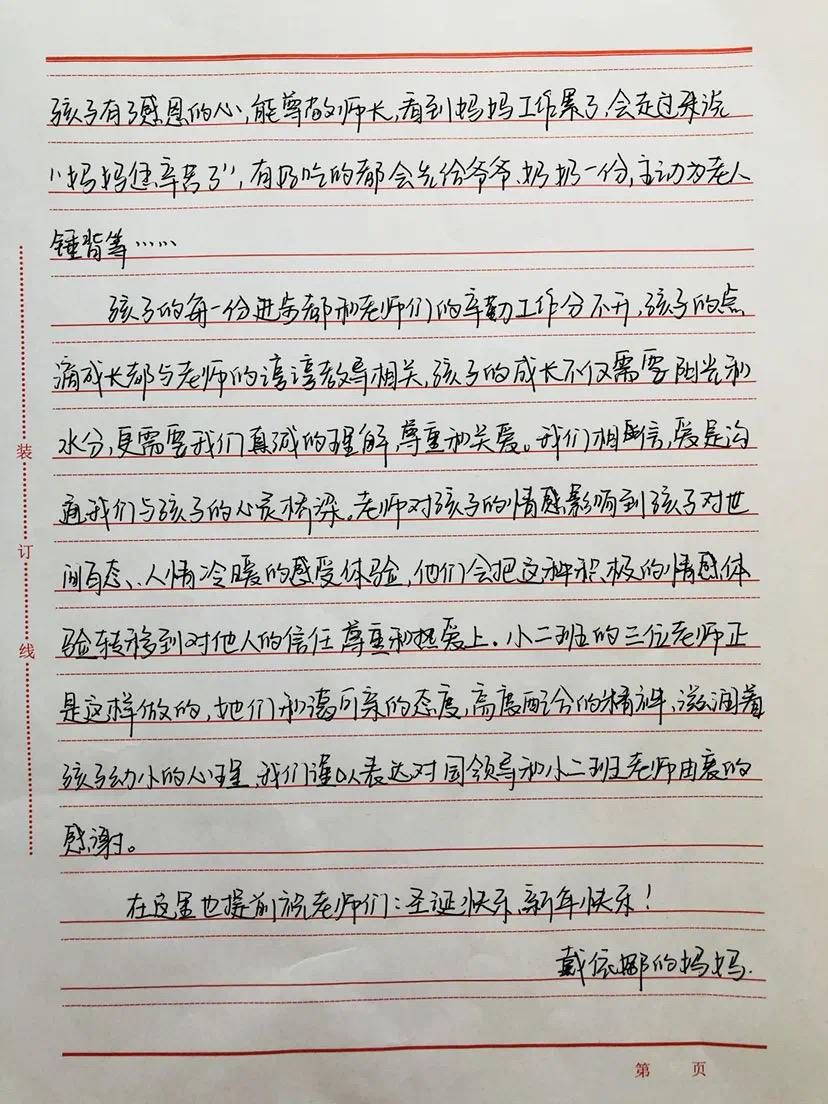 孩子有了感恩的心,能尊敬师长,看到妈妈工作累了,会走过来说
“妈妈您辛苦了”,有好吃的都会先给爷爷、奶奶一份,主动为老人
锤背等……
孩子的每一份进步都和老师们的辛勤工作分不开,孩子的点
滴成长都与老师的谆谆教导相关,孩子的成长不仅需要阳光和
水分,更需要我们真诚的理解,尊重和关爱。我们相信,爱是沟
通我们与孩子的心灵桥梁。老师对孩子的情感影响到孩子对世
间百态、人情冷暖的感受体验,他们会把这种积极的情感体
验转移到对他人的信任尊重和热爱上.小二班的三位老师正
是这样做的,她们和蔼可亲的态度,高度配合的精神,滋润着
孩子幼小的心理,我们谨以表达对园领导和小二班老师由衷的
感谢。
在这里也提前祝老师们:圣诞快乐、新年快乐!
戴依娜的妈妈.
装
订
线
第 页